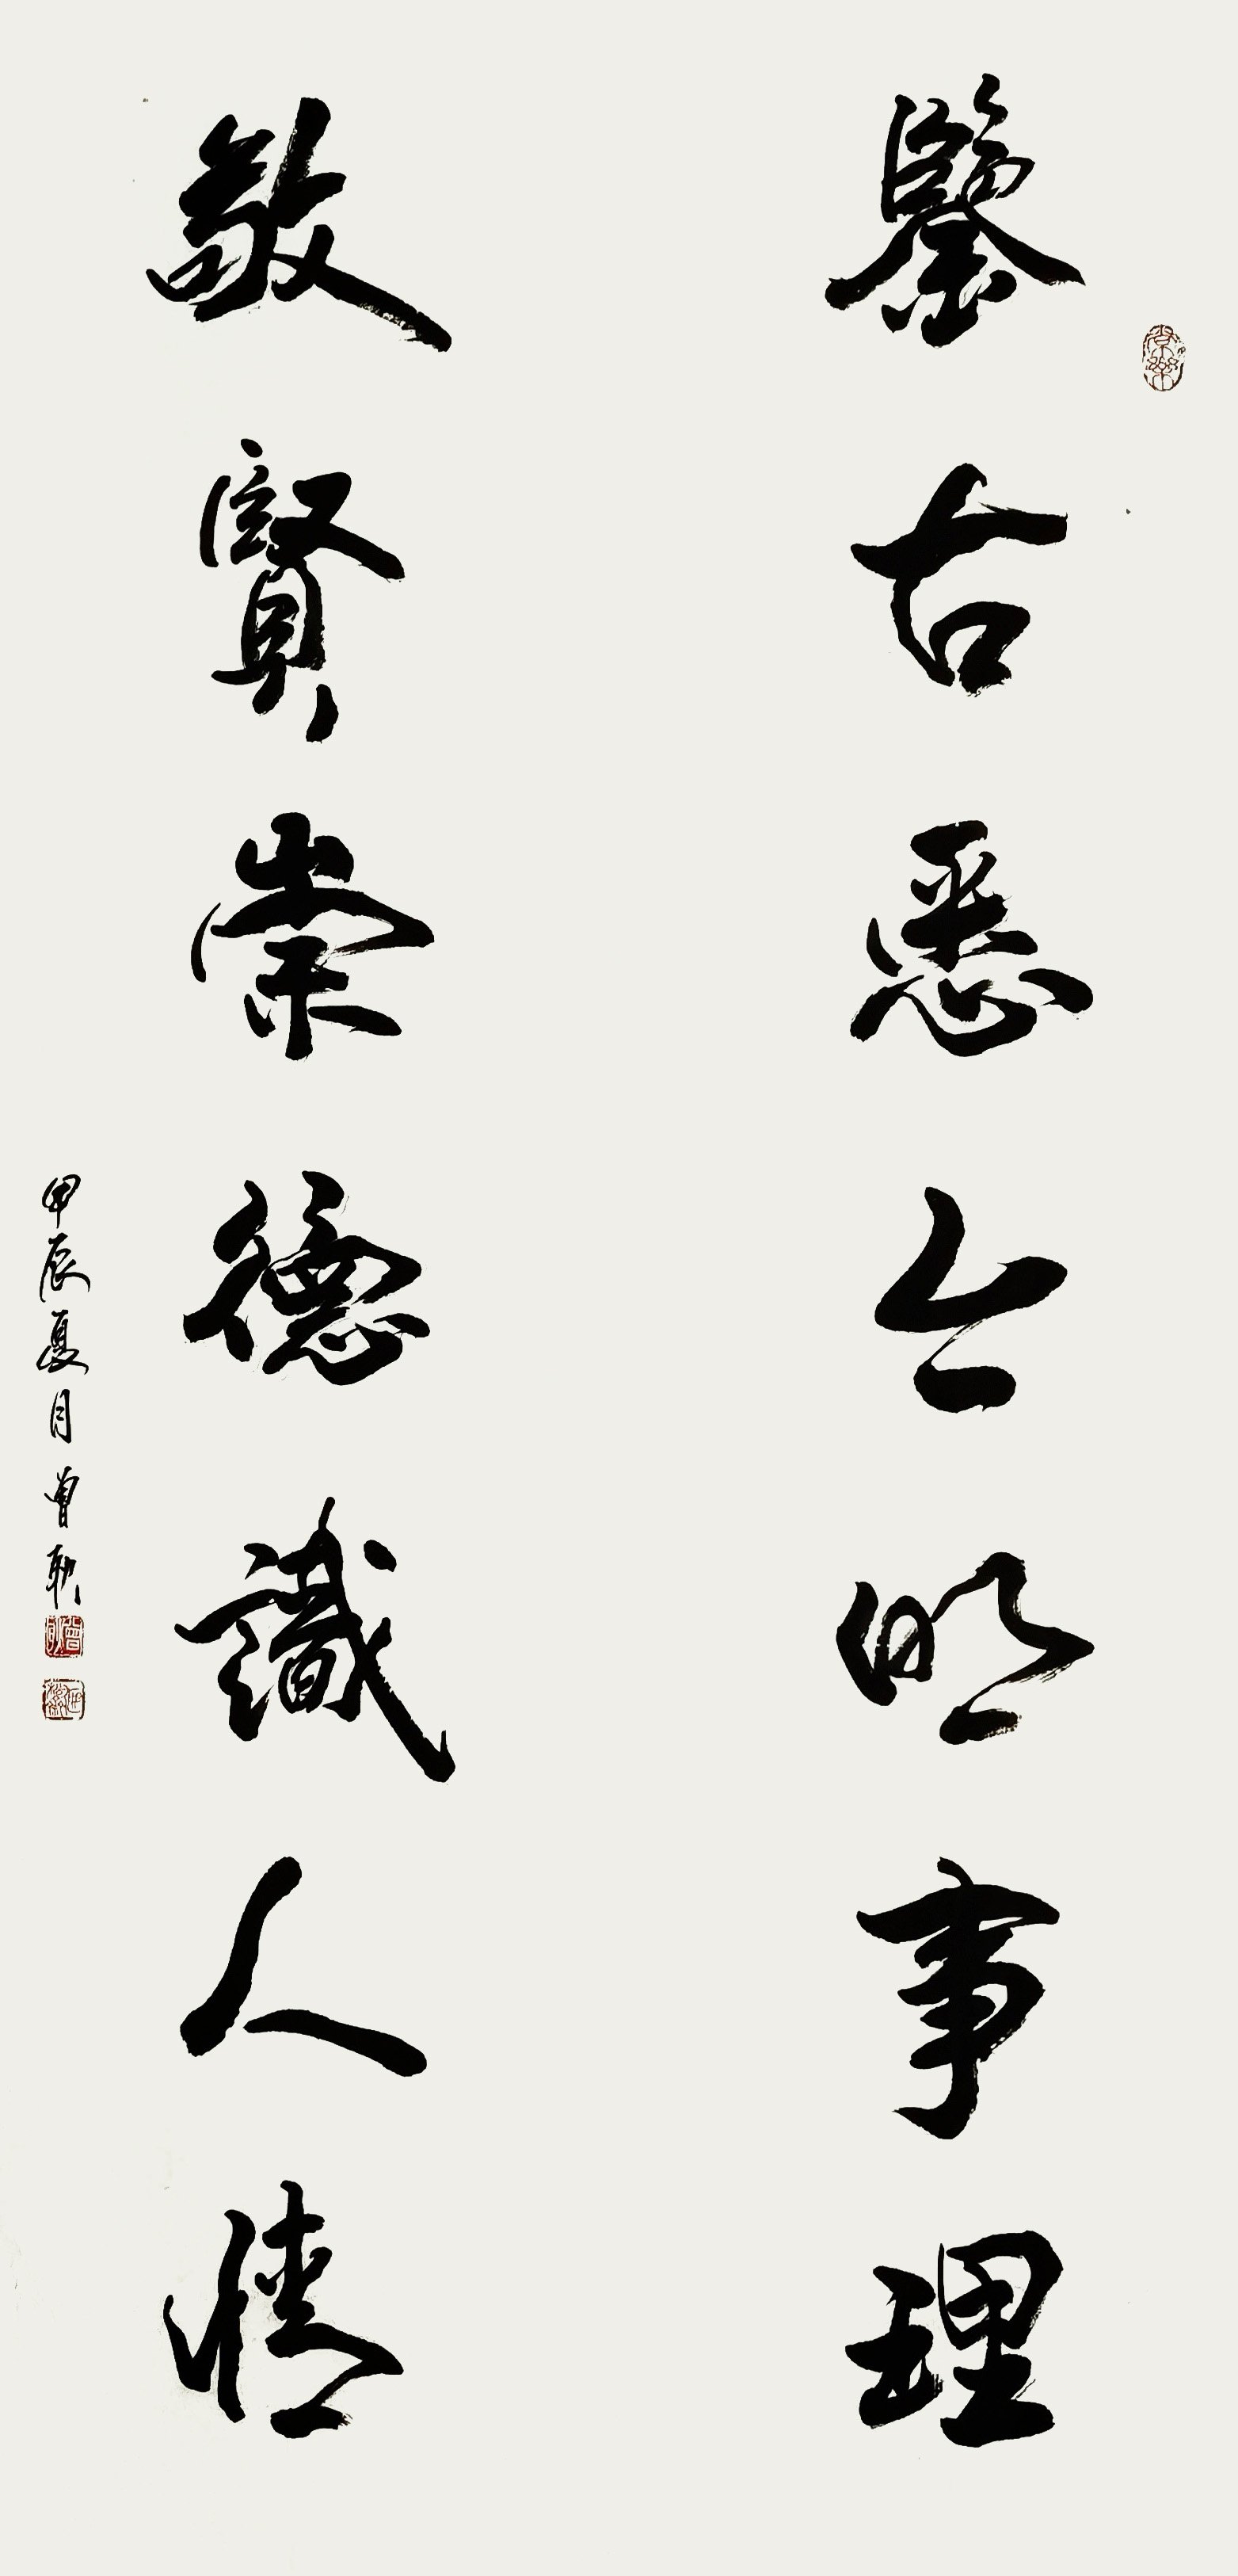 鑒古悉今明事理
敬賢崇德識人情
甲辰夏月曾勑